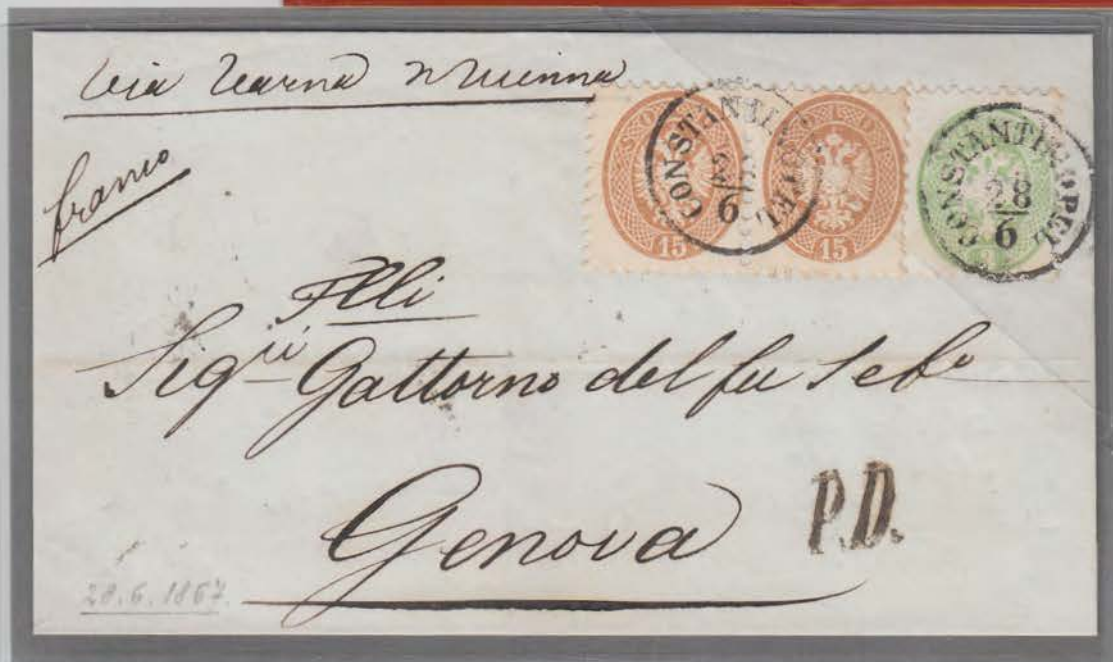 via Varna Vienna
franco
CONSTANTINOPEL
28
6
CONSTANTINOPEL
28
6
SOLDI
15
15
3
Flli
Sigri Gattorno del fu Seb.o
Genova
P.D.
28.6.1867.